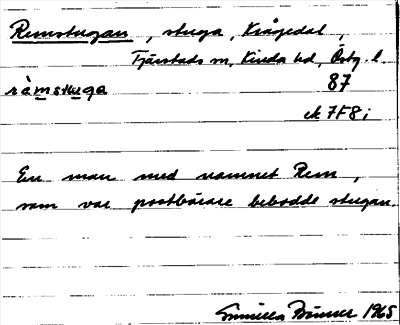 Remstugan, stuga, Krågedal,
Tjärstads sn, Kinda hd, Östg. l.
rèmstuga 87
ek 7F8i
En man med namnet Rem,
som var postbärare bebodde stugan.
Gunilla 1965